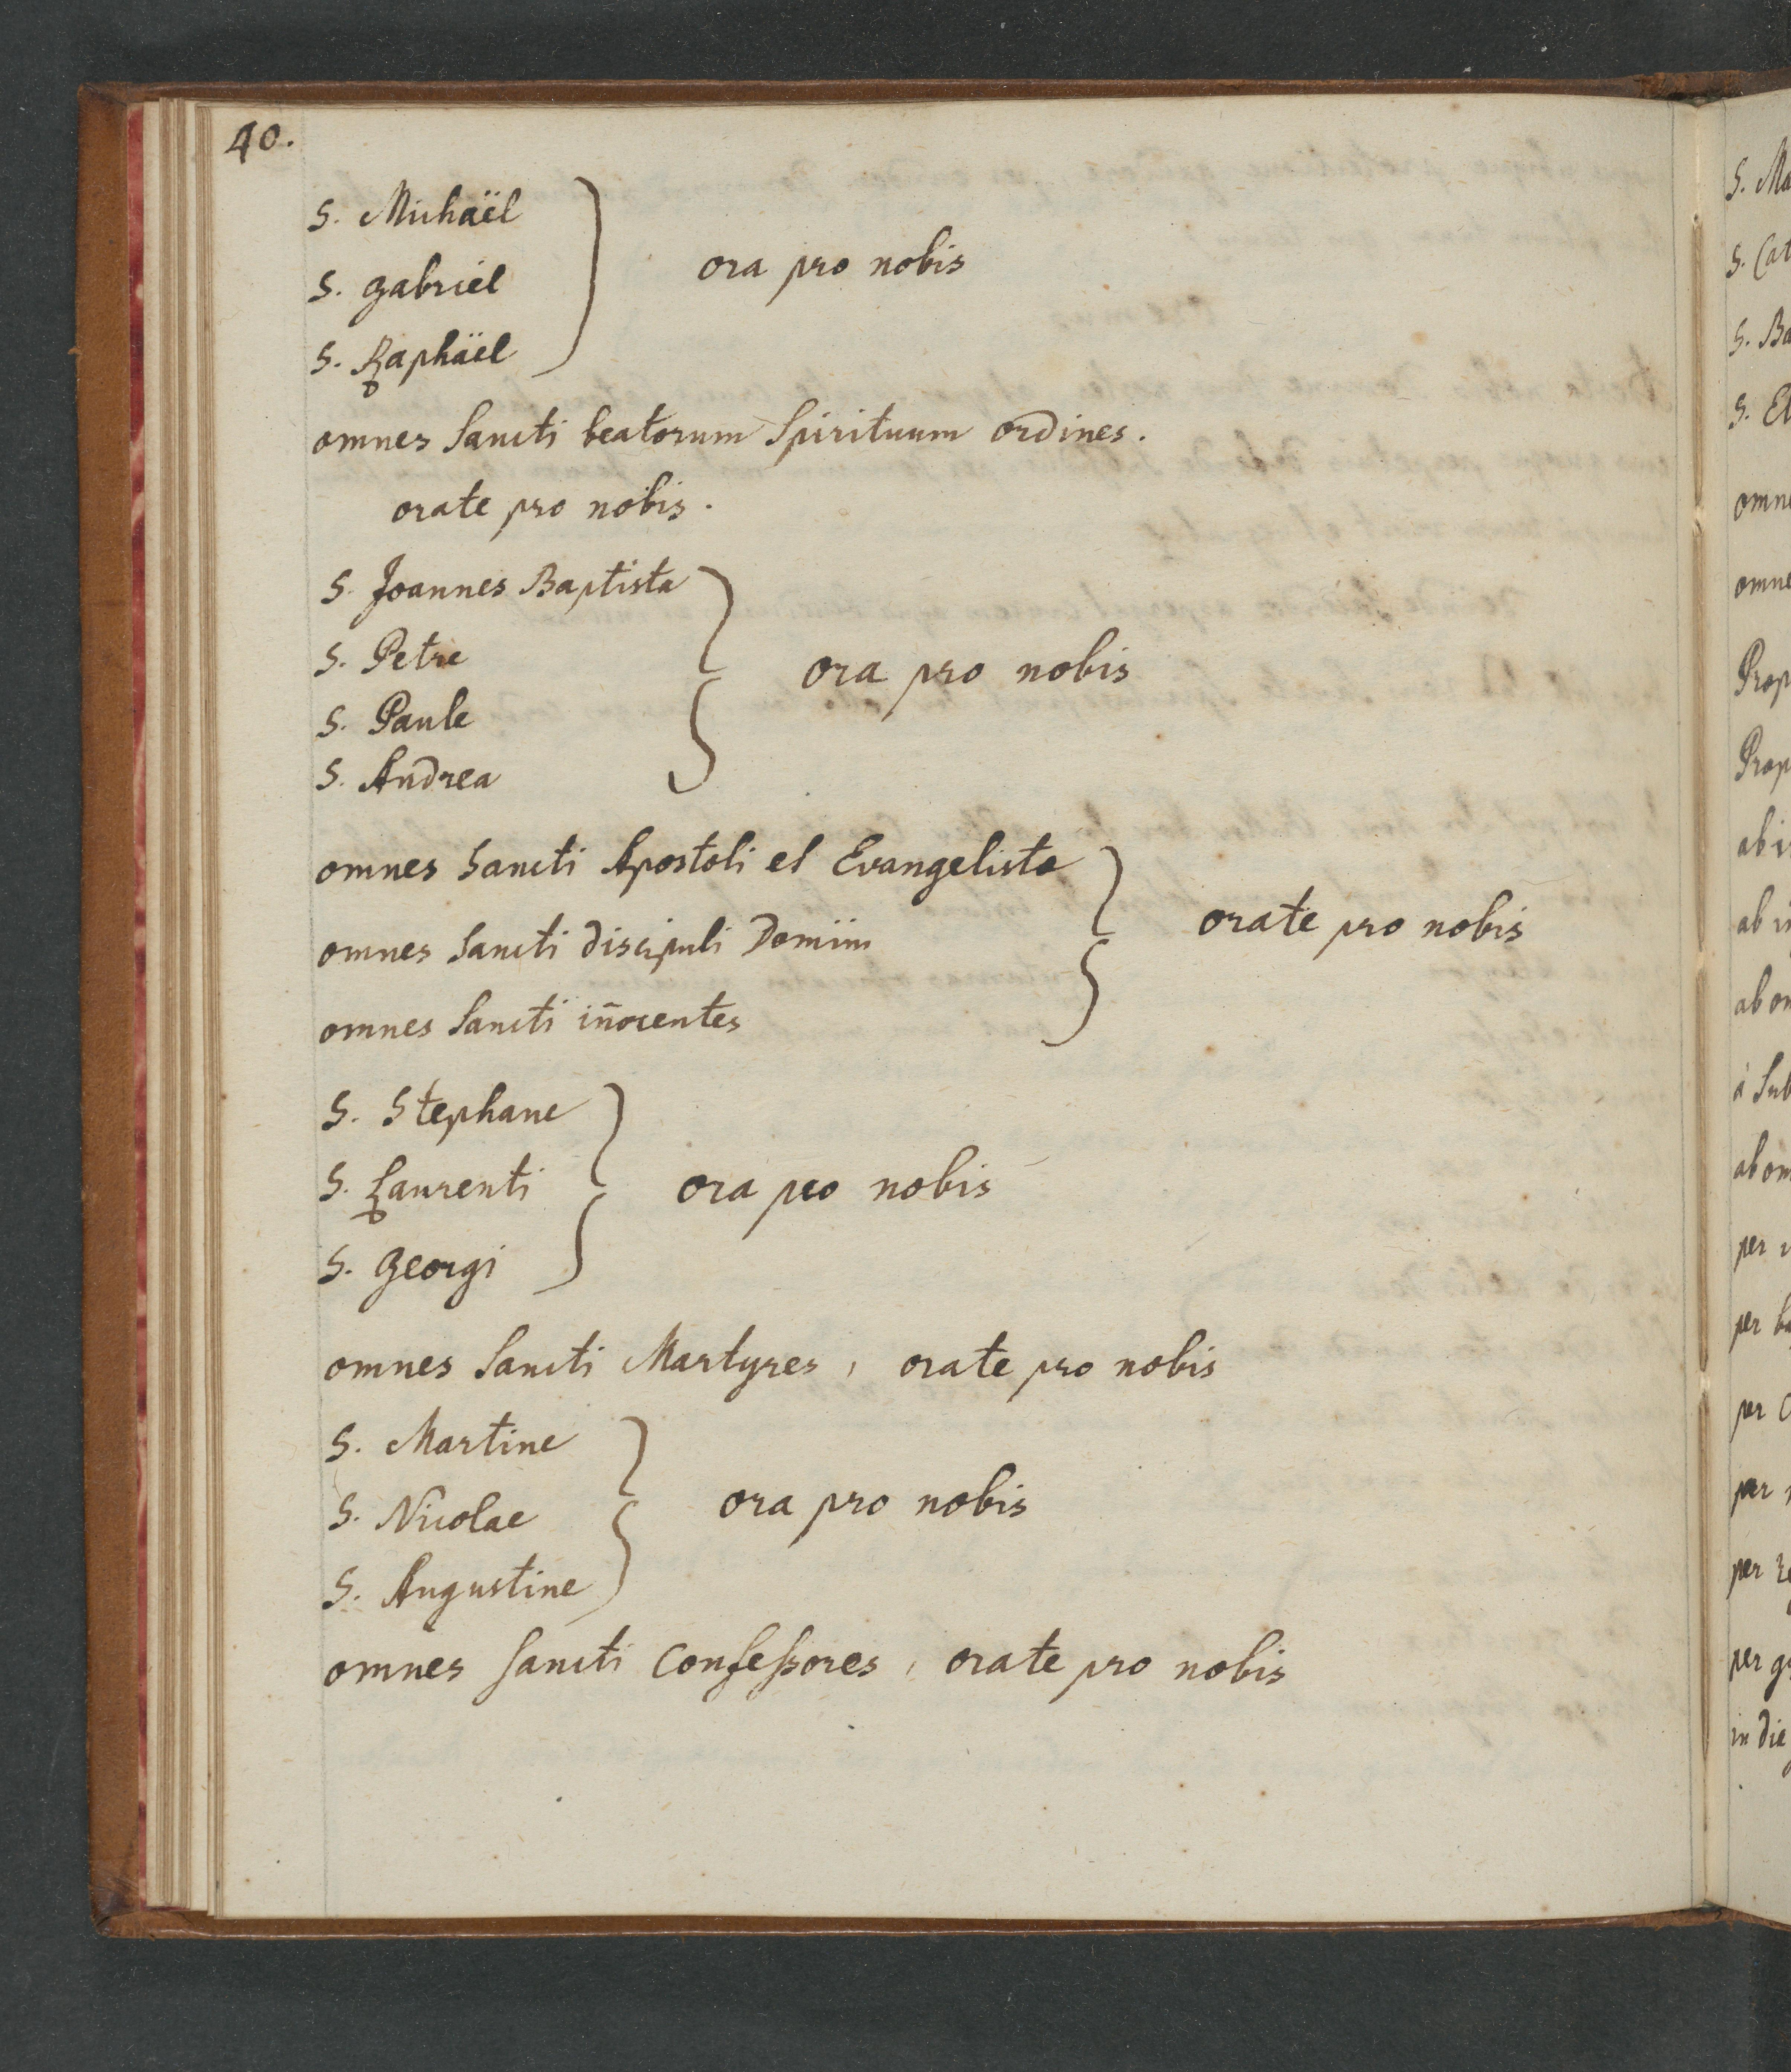 40.
S. Michaël
S. Gabriel
S. Raphäel
ora pro nobis
omnes Sancti beatorum Spirituum ordines.
orate pro nobis.
S. Joannes Baptista
S. Petre
S. Paule
S. Andrea
ora pro nobis
omnes Sancti Apostoli et Evangelistæ
omnes Sancti discipuli Domini
omnes Sancti iñocentes
orate pro nobis
S. Stephane
S. Laurenti
S. Georgi
ora pro nobis
omnes Sancti Martyres, orate pro nobis
S. Martine
S. Nicolae
S. Augustine
ora pro nobis
omnes Sancti Confeßores, orate pro nobis
S. Ma
S. Cat
S. Ba
S. El
omne
omne
Prop
Prop
ab i
ab i
ab om
à Sub
ab om
per
per
per
per
per
per
in die